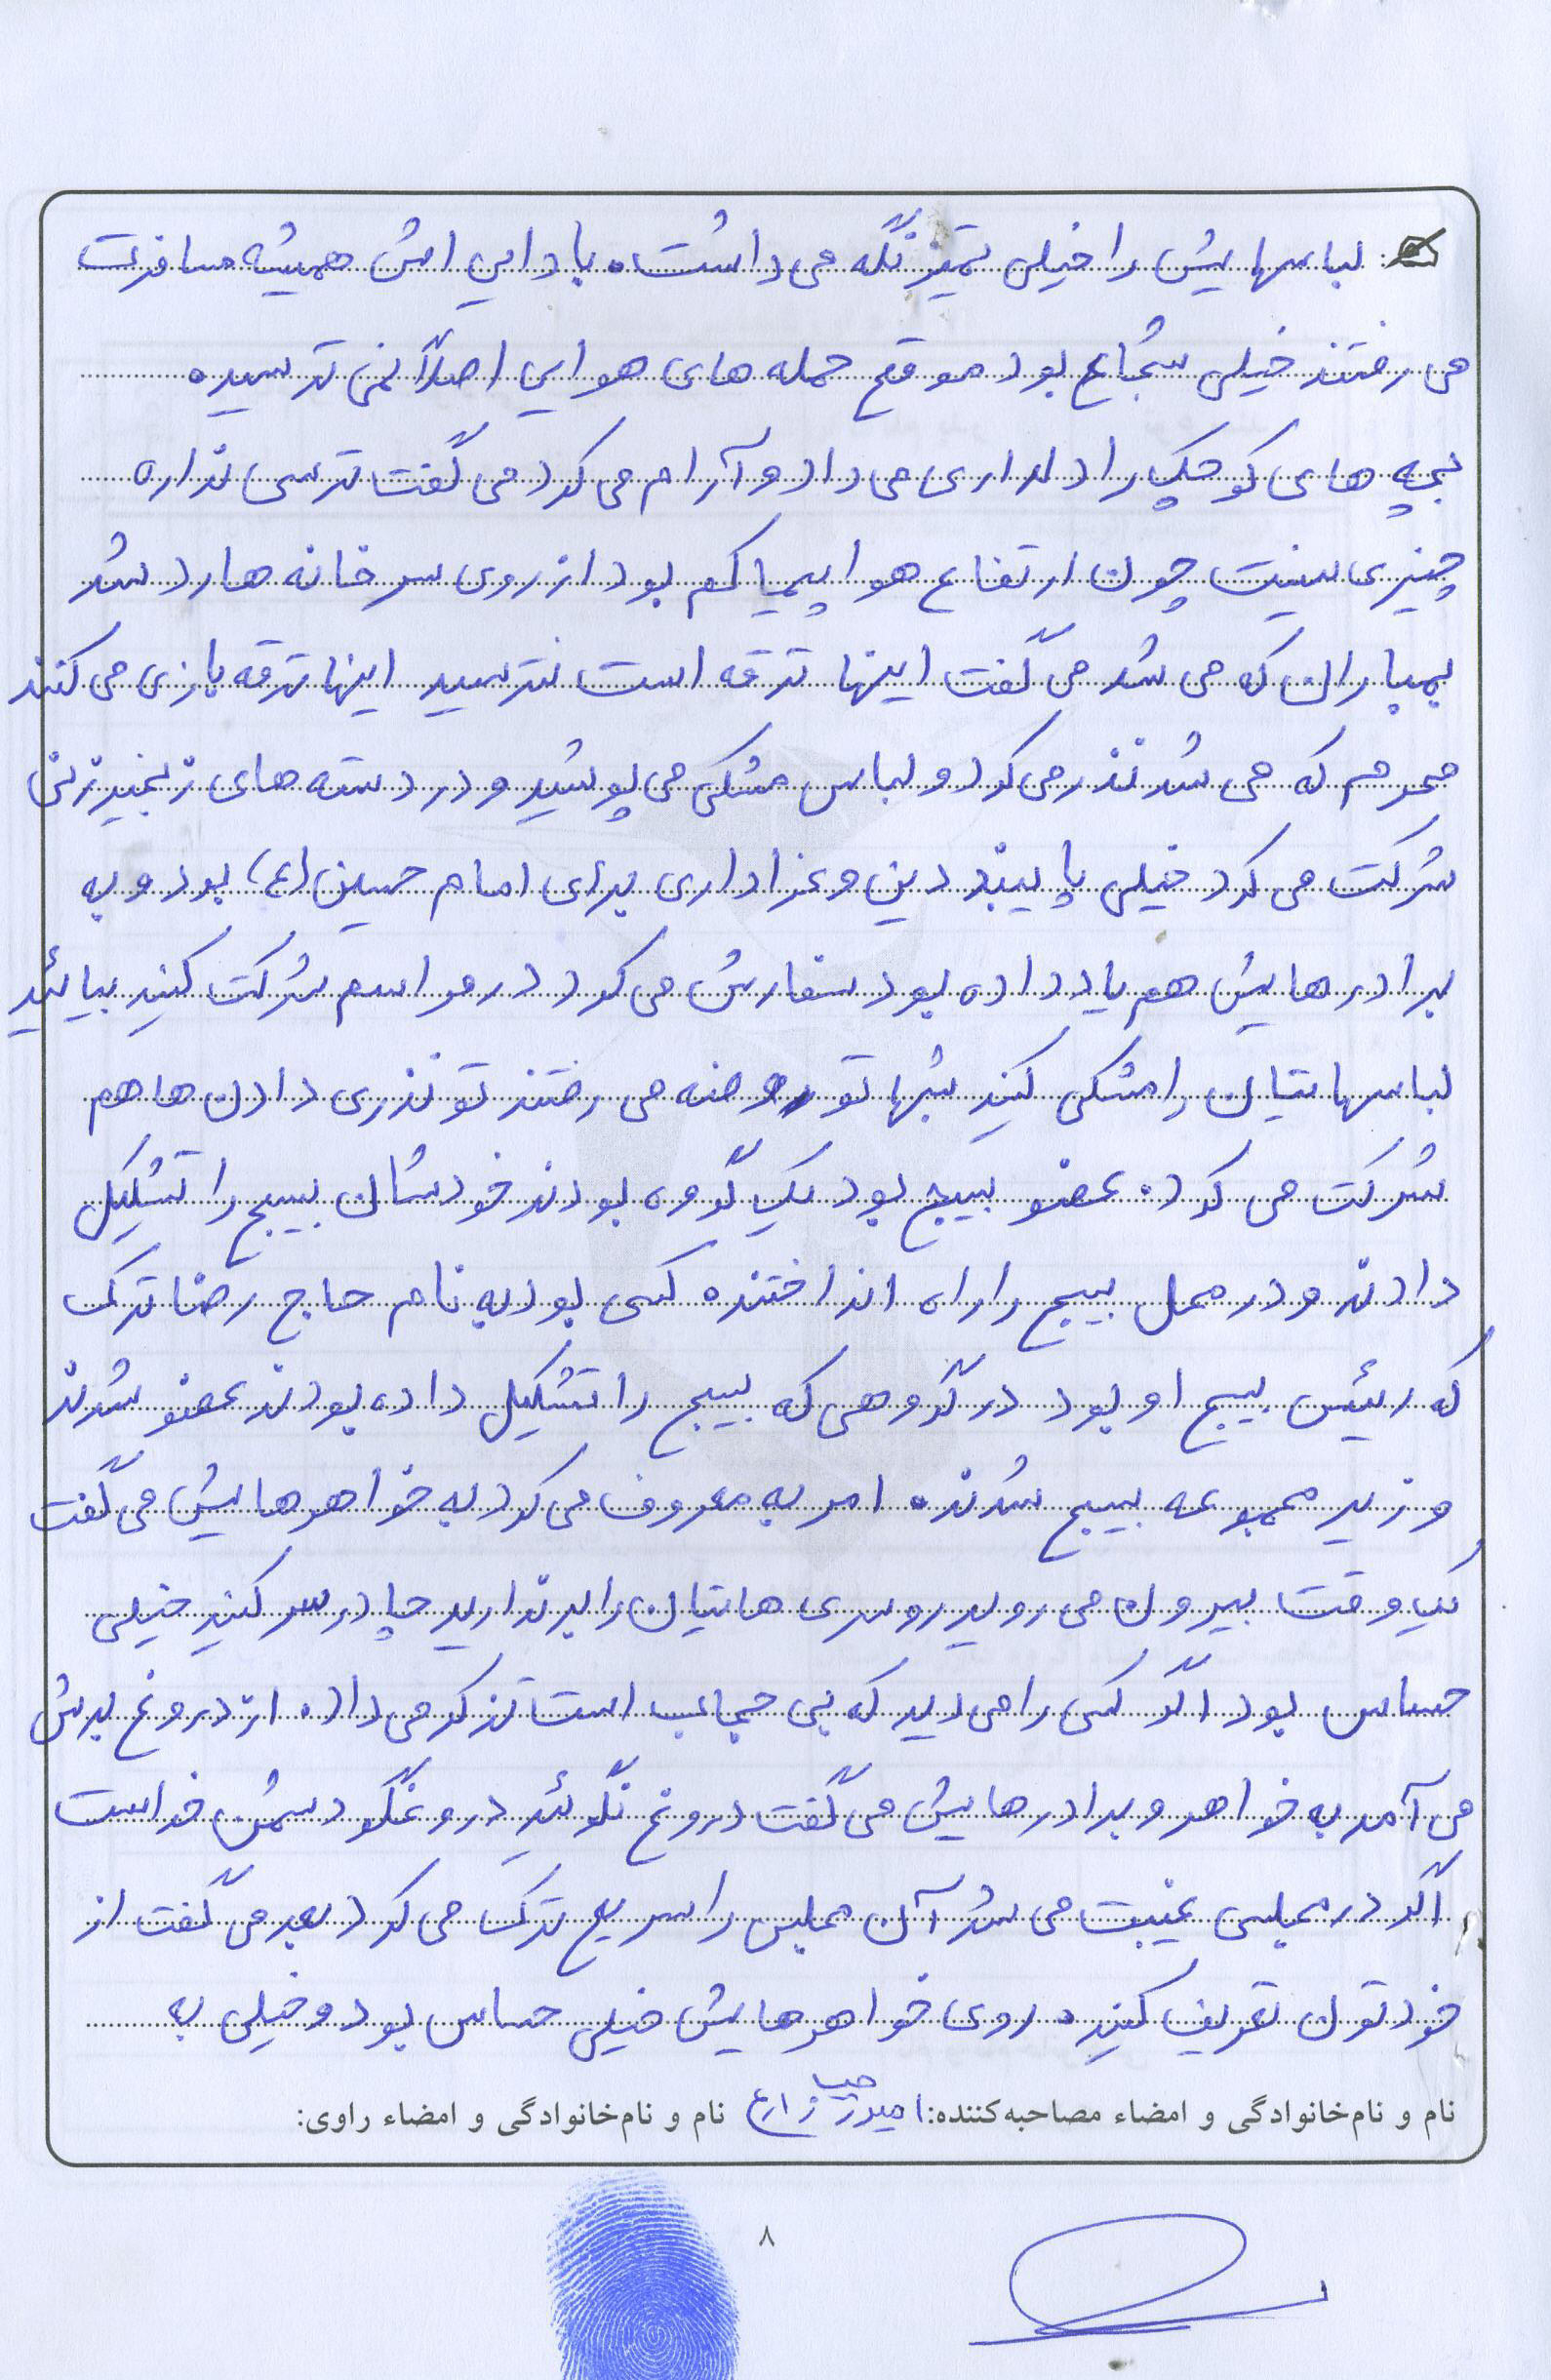 لباسهایش را خیلی تمیز نگه می داشت. با دایی اش همیشه مسافرت
می رفتند خیلی شجاع بود موقع حمله های هوایی اصلاً نمی ترسید.
بچه های کوچک را دلداری می داد و آرام می کرد می گفت ترسی نداره
چیزی نیست چون ارتفاع هواپیما کم بود از روی سر خانه ها رد شد
بمباران که می شد می گفت اینها ترقه است نترسید اینها ترقه بازی می کنند
محرم که می شد نذر می کرد و لباس مشکی می پوشید و در دسته های زنجیر زنی
شرکت می کرد خیلی پایبند دین و عزاداری برای امام حسین (ع) بود و به
برادرهایش هم یاد داده بود سفارش می کرد در مراسم شرکت کنید بیائید
لباسهایتان را مشکی کنید شبها تو روضه می رفتند تو نذری دادن ها هم
شرکت می کرد. عضو بسیج بود یک گروه بودند خودشان بسیج را تشکیل
دادند و در محل بسیج را راه انداختند. کسی بود به نام حاج رضا ترک
که رئیس بسیج او بود در گروهی که بسیج را تشکیل داده بودند عضو شدند
و زیر مجموعه بسیج شدند. امر به معروف می کرد به خواهرهایش می گفت
یک وقت بیرون می روید روسری هایتان را برندارید چادر سر کنید خیلی
حساس بود اگر کسی را می دید که بی حجاب است تذکر می داد. از دروغ بدش
می آمد به خواهر و برادرهایش می گفت دروغ نگوئید دروغگو دشمن خداست
اگر در مجلسی غیبت می شد آن مجلس را سریع ترک می کرد بعد می گفت از
خودتون تعریف کنید. روی خواهرهایش خیلی حساس بود و خیلی به
نام و نام‌خانوادگی و امضاء مصاحبه‌کننده: زارع نام و نام‌خانوادگی و امضاء راوی:
۸